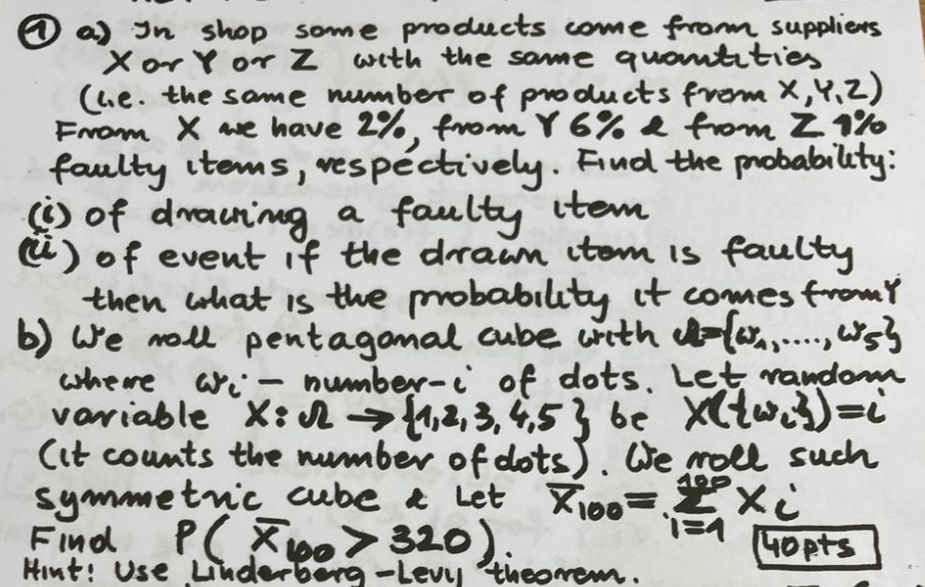 ① a) In shop some products come from suppliers
X or Y or Z with the same quantities
(i.e. the same number of products from X, Y, Z)
From X we have 2%, from Y 6% & from Z 1%
faulty items, respectively. Find the probability:
(i) of drawing a faulty item
(ii) of event if the drawn item is faulty
then what is the probability it comes from Y
b) We roll pentagonal cube with Ω={ω₁,....,ω₅}
where ωᵢ – number-i of dots. Let random
variable X: Ω → {1,2,3,4,5} be X({ωᵢ})=i
(it counts the number of dots). We roll such
symmetric cube & Let X̄₁₀₀ = ∑_{i=1}^{100} Xᵢ
Find P( X̄₁₀₀ > 320).
40pts
Hint! Use Linderberg-Levy theorem.